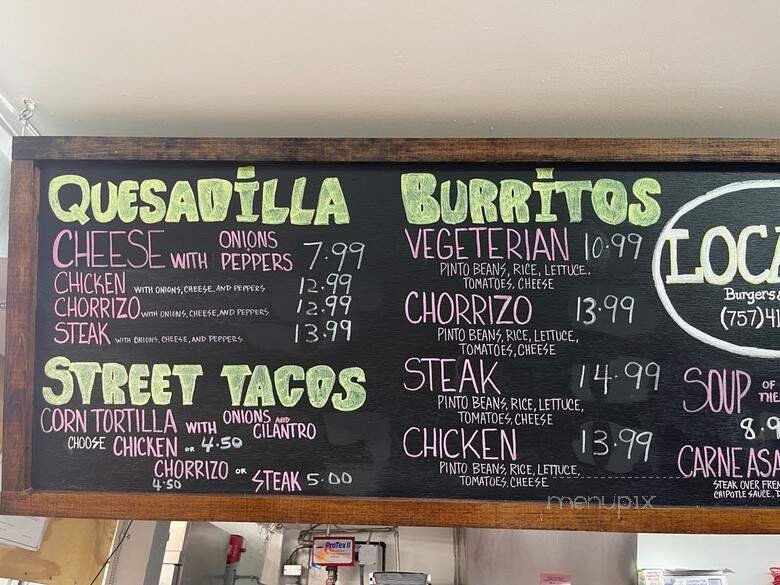 QUESADILLA
CHEESE WITH ONIONS PEPPERS 7.99
CHICKEN WITH ONIONS, CHEESE, AND PEPPERS 12.99
CHORRIZO WITH ONIONS, CHEESE, AND PEPPERS 12.99
STEAK WITH ONIONS, CHEESE, AND PEPPERS 13.99
STREET TACOS
CORN TORTILLA WITH ONIONS AND CILANTRO
CHOOSE CHICKEN OR 4.50
CHORRIZO OR
4.50
STEAK 5.00
BURRITOS
VEGETERIAN 10.99
PINTO BEANS, RICE, LETTUCE,
TOMATOES, CHEESE
CHORRIZO 13.99
PINTO BEANS, RICE, LETTUCE,
TOMATOES, CHEESE
STEAK 14.99
PINTO BEANS, RICE, LETTUCE,
TOMATOES, CHEESE
CHICKEN 13.99
PINTO BEANS, RICE, LETTUCE,
TOMATOES, CHEESE
LOCA
Burgers
(757)41
SOUP OF THE
8.9
CARNE ASA
STEAK OVER FREN
CHIPOTLE SAUCE,
menupix
ProTex II